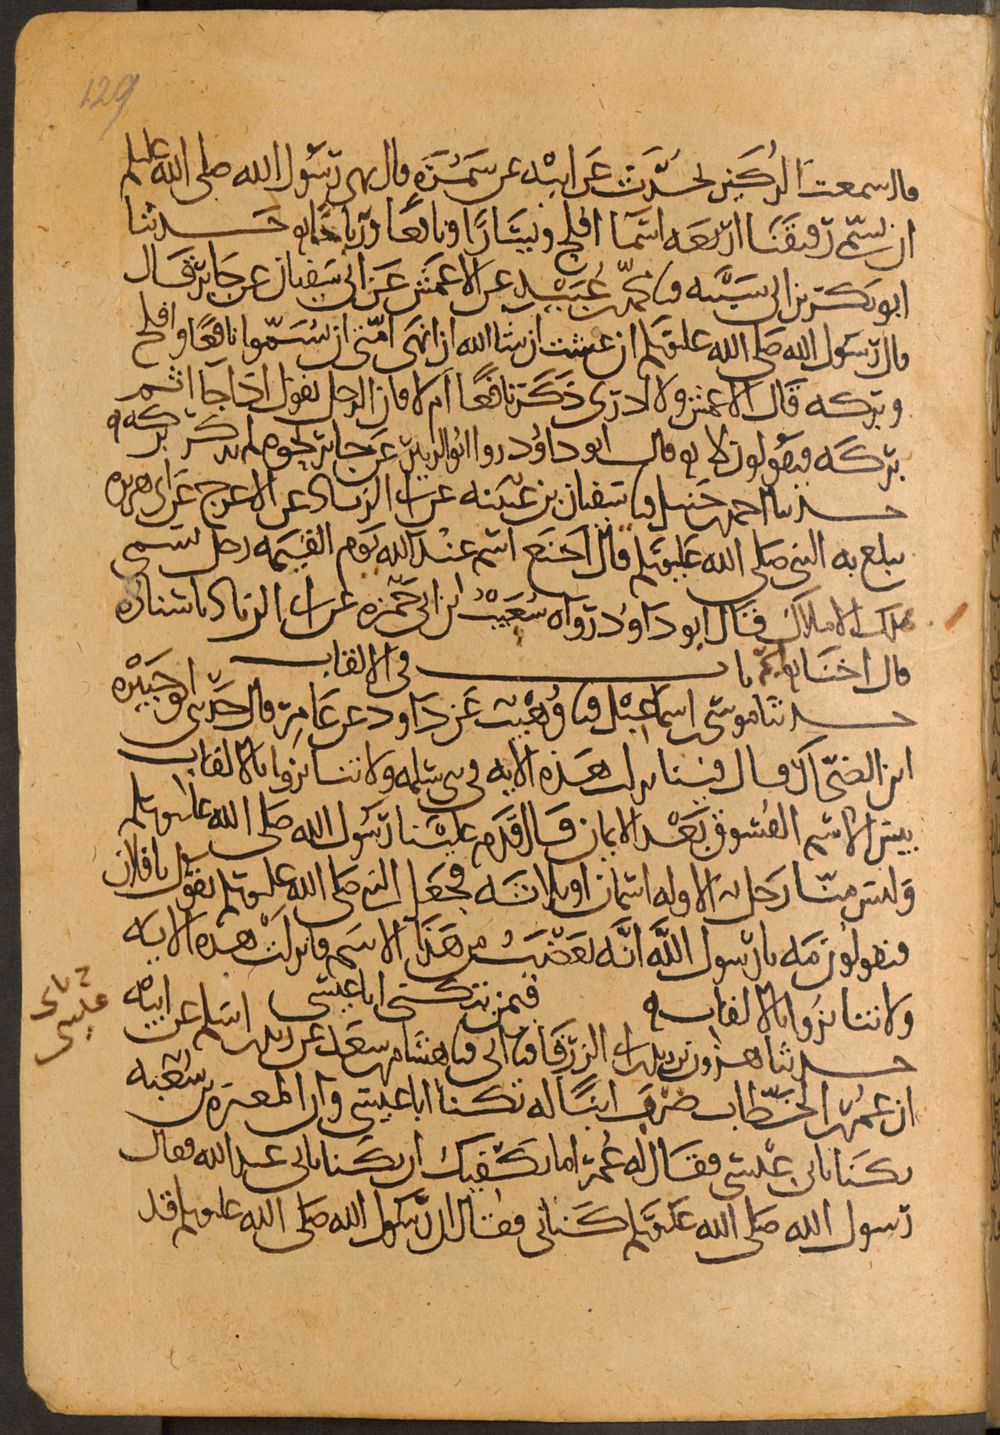 129
قال سمعت الركين يحدث عن ابيه عن سمرة قال نهى رسول الله صلى الله عليه وسلم
ان نسمي رقيقنا اربعة اسما افلح ويسارا ونافعا ورباحا حدثنا
ابو بكر بن ابي شيبة نا محمد بن عبيد عن الاعمش عن ابي سفيان عن جابر قال
قال رسول الله صلى الله عليه وسلم ان عشت ان شا الله ان انهى امتي ان يسموا نافعا وافلح
وبركه قال الاعمش ولا ادري ذكر نافعا ام لا فان الرجل يقول اذا جا اثم
بركه فيقولون لا قال ابو داود روا ابو الزبير عن جابر نحوه لم يذكر بركه
حدثنا احمد بن حنبل نا سفيان بن عيينه عن ابي الزناد عن الاعرج عن ابي هريره
يبلغ به النبي صلى الله عليه وسلم قال اخنع اسم عند الله يوم القيمه رجل تسمى
ملك الاملاك قال ابو داود رواه شعيب بن ابي حمزه عن ابي الزناد باسناده
قال اخنا اسم باب في الالقاب
حدثنا موسى بن اسماعيل نا وهيب عن داود عن عامر قال حدثني ابو جبيره
ابن الضحاك قال فينا نزلت هذه الايه في بني سلمه ولا تنابزوا بالالقاب
بيس الاسم الفسوق بعد الايمان قال قدم علينا رسول الله صلى الله عليه وسلم
وليس منا رجل الا وله اسمان او ثلاثه فجعل النبي صلى الله عليه وسلم يقول يا فلان
فيقولون مه يا رسول الله انه يغضب من هذا الاسم فانزلت هذه الايه
ولا تنابزوا بالالقاب فيمن يتكنى ابا عيسى
بابي
عيسى
حدثنا هرون بن زيد بن ابي الزرقا نا ابي نا هشام بن سعد عن زيد بن اسلم عن ابيه
ان عمر بن الخطاب ضرب ابنا له تكنا ابا عيسى وان المغيره بن شعبه
تكنا بابي عيسى فقال له عمر اما يكفيك ان تكنا بابي عبد الله فقال
رسول الله صلى الله عليه وسلم كناني فقال ان رسول الله صلى الله عليه وسلم قد